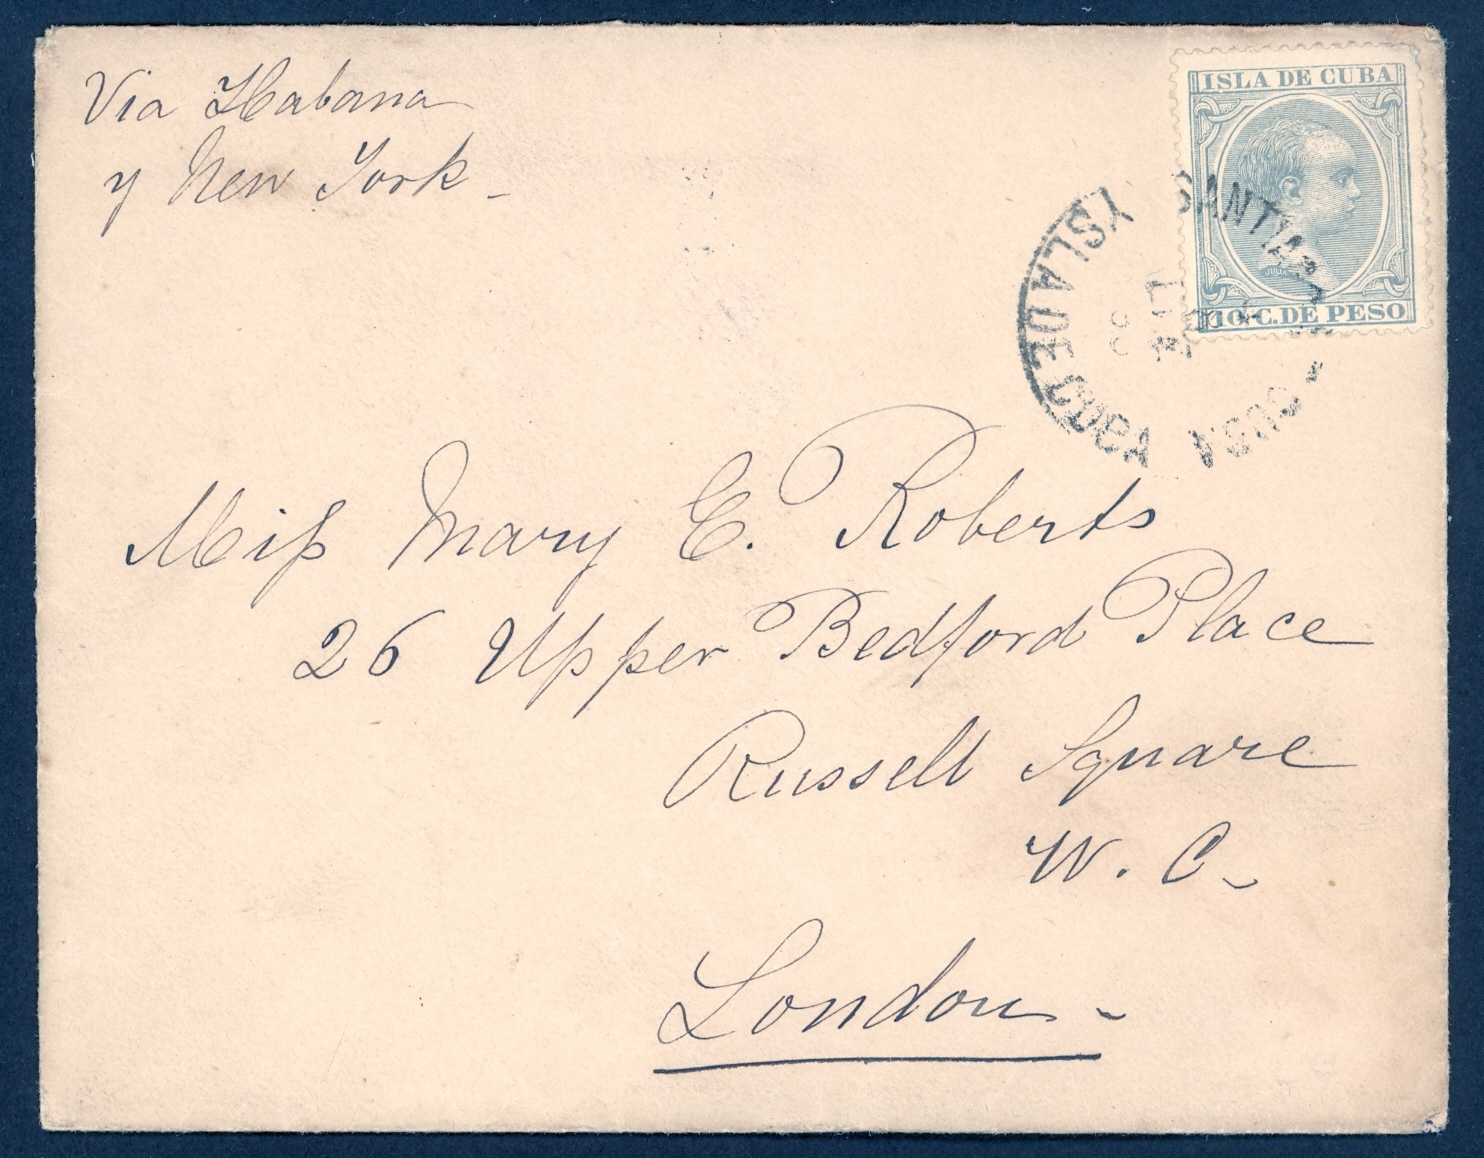 Via Habana
y New York -
ISLA DE CUBA
JULIA
10 C. DE PESO
SANTIAGO
CUBA
YSLA DE CUBA
Miſs Mary E. Roberts
26 Upper Bedford Place
Russell Square
W. C.
London -